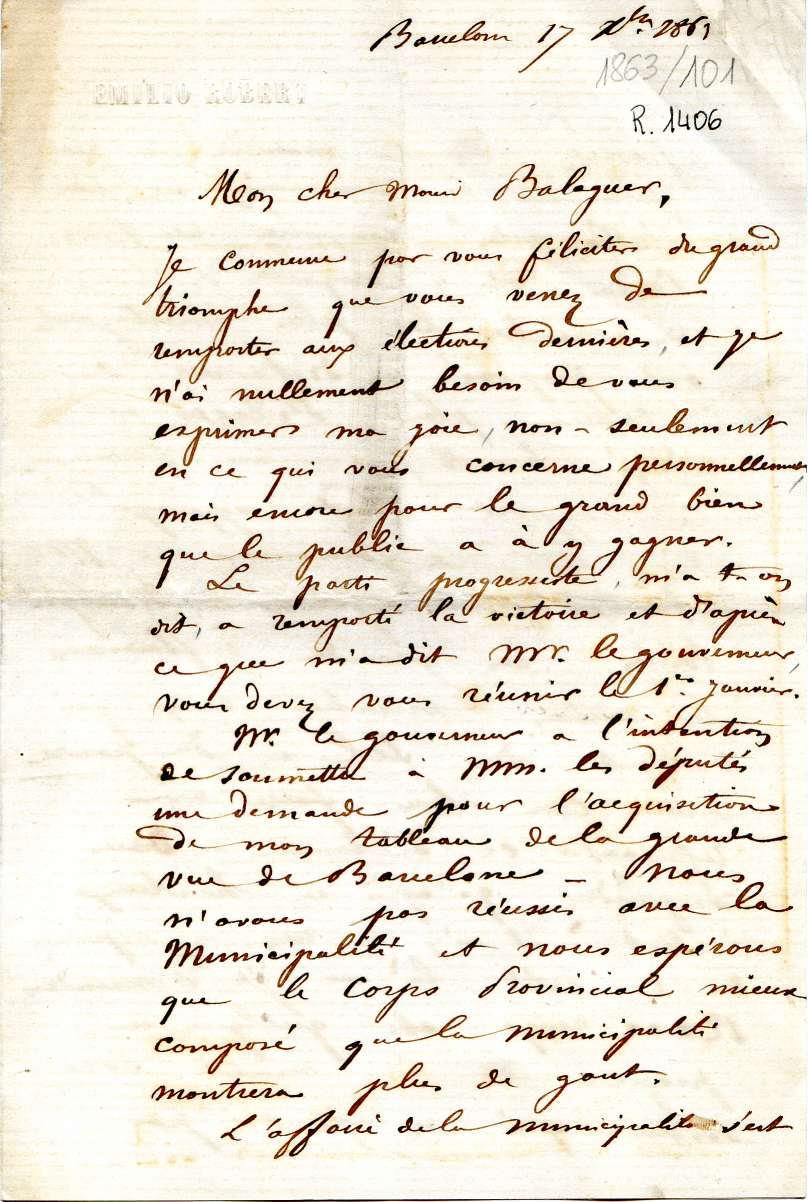 Barcelone 17 Xbre 1863
1863/101
EMILIO ROBERT
R. 1406
Mon cher Monsieur Balaguer,
Je commence par vous féliciter du grand
triomphe que vous venez de
remporter aux élections dernières, et je
n'ai nullement besoin de vous
exprimer ma joie, non-seulement
en ce qui vous concerne personnellement,
mais encore pour le grand bien
que le public a à y gagner.
Le parti progressiste, m'a t-on
dit, a remporté la victoire et d'après
ce que m'a dit Mr. le gouverneur,
vous devez vous réunir le 1er Janvier.
Mr. le gouverneur a l'intention
de soumettre à Mm. les députés
une demande pour l'acquisition
de mon tableau de la grande
vue de Barcelone _ Nous
n'avons pas réussi avec la
Municipalité et nous espérons
que le Corps Provincial mieux
composé que la municipalité
montrera plus de gout.
L'affaire de la municipalité s'est